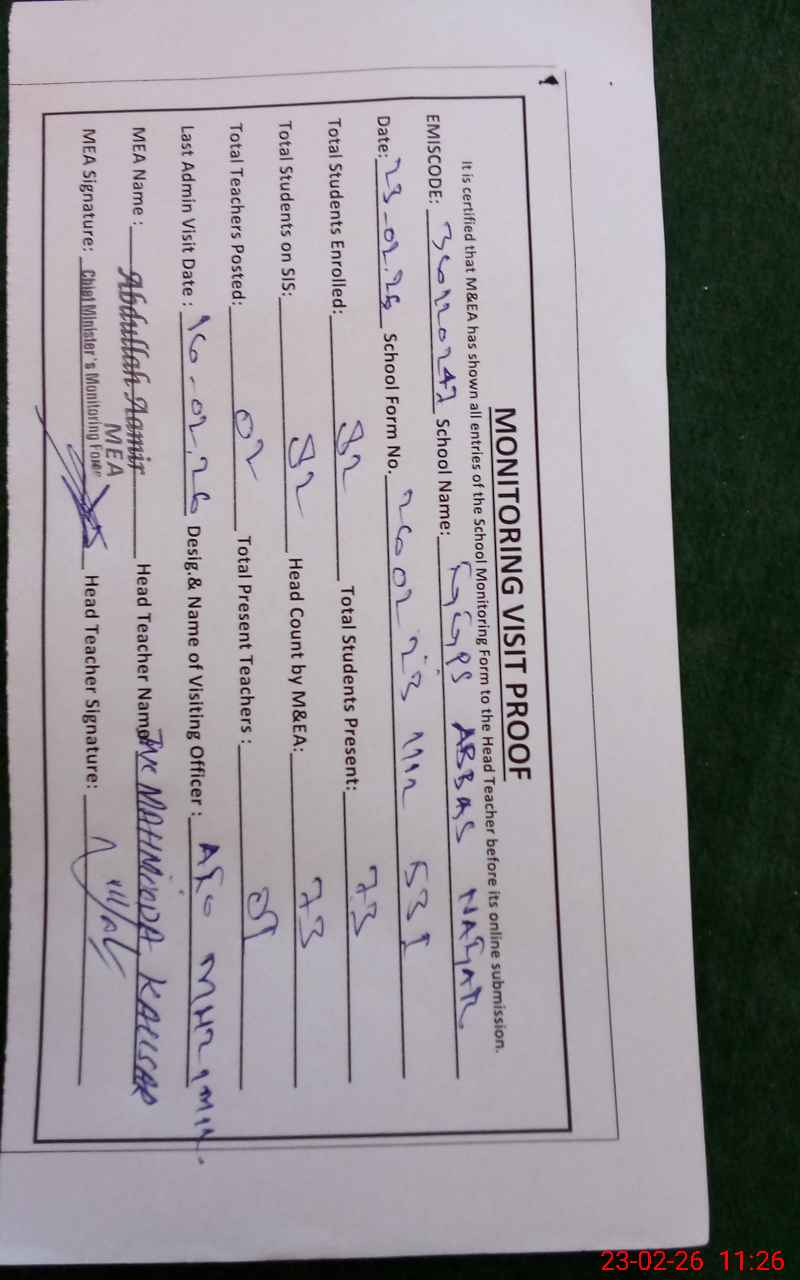 MONITORING VISIT PROOF
It is certified that M&EA has shown all entries of the School Monitoring Form to the Head Teacher before its online submission.
EMISCODE: School Name: GGPS ABBAS NAGAR
Date: 23-02-26 School Form No.
Total Students Enrolled: 82 Total Students Present: 73
Total Students on SIS: 82 Head Count by M&EA: 73
Total Teachers Posted: 02 Total Present Teachers :
Last Admin Visit Date : 16-02-26 Desig.& Name of Visiting Officer : AEO
MEA Name : Abdullah Aamir Head Teacher Name MAHMOODA KAUSAR
MEA
MEA Signature: Chief Minister's Monitoring Force Head Teacher Signature:
23-02-26 11:26